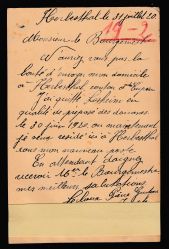 Herbesthal le 31 juillet 20.
19-2
Monsieur le Bourgmestre
N'aurez vous pas la
bonté d'envoyer mon domicile
à Herbesthal, canton d'Eupen
J'ai quitté en
qualité de préposé des douanes
le 30 juin 1920, ou maintenant
je reside ici à Herbesthal
sous mon nouveau poste
En attendant daignez
recevoir Mr. le Bourgmestre
mes meilleurs salutations